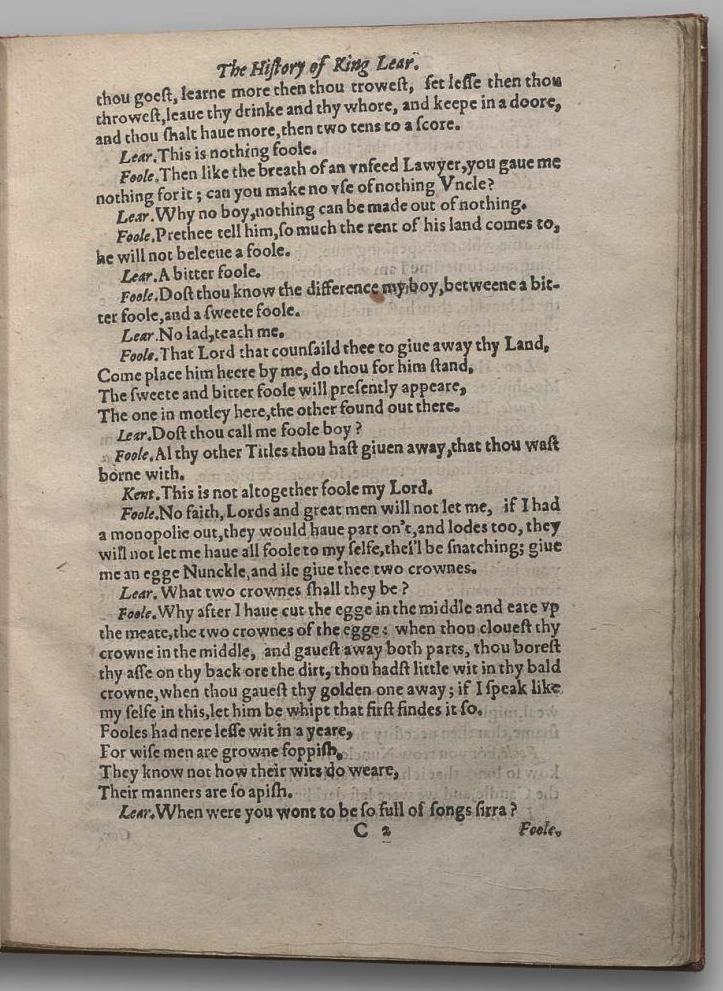 The Hiſtory of King Lear.
thou goeſt, learne more then thou troweſt, ſet leſſe then thou
throweſt,leaue thy drinke and thy whore, and keepe in a doore,
and thou ſhalt haue more,then two tens to a ſcore.
Lear.This is nothing foole.
Foole.Then like the breath of an vnfeed Lawyer,you gaue me
nothing for it ; can you make no vſe of nothing Vncle?
Lear.Why no boy,nothing can be made out of nothing.
Foole.Prethee tell him,ſo much the rent of his land comes to,
he will not beleeue a foole.
Lear.A bitter foole.
Foole.Doſt thou know the difference my boy,betweene a bit-
ter foole,and a ſweete foole.
Lear.No lad,teach me.
Foole.That Lord that counſaild thee to giue away thy Land,
Come place him heere by me, do thou for him ſtand,
The ſweete and bitter foole will preſently appeare,
The one in motley here,the other found out there.
Lear.Doſt thou call me foole boy ?
Foole.Al thy other Titles thou haſt giuen away,that thou waſt
borne with.
Kent.This is not altogether foole my Lord.
Foole.No faith, Lords and great men will not let me, if I had
a monopolie out,they would haue part on't,and lodes too, they
will not let me haue all foole to my ſelfe,thei'l be ſnatching; giue
me an egge Nunckle,and ile giue thee two crownes.
Lear. What two crownes ſhall they be ?
Foole.Why after I haue cut the egge in the middle and eate vp
the meate,the two crownes of the egge : when thou cloueſt thy
crowne in the middle, and gaueſt away both parts, thou boreſt
thy aſſe on thy back ore the dirt, thou hadſt little wit in thy bald
crowne,when thou gaueſt thy golden one away ; if I ſpeak like
my ſelfe in this,let him be whipt that firſt findes it ſo.
Fooles had nere leſſe wit in a yeare,
For wiſe men are growne foppiſh,
They know not how their wits do weare,
Their manners are ſo apiſh.
Lear.When were you wont to be ſo full of ſongs ſirra ?
C 2 Foole.